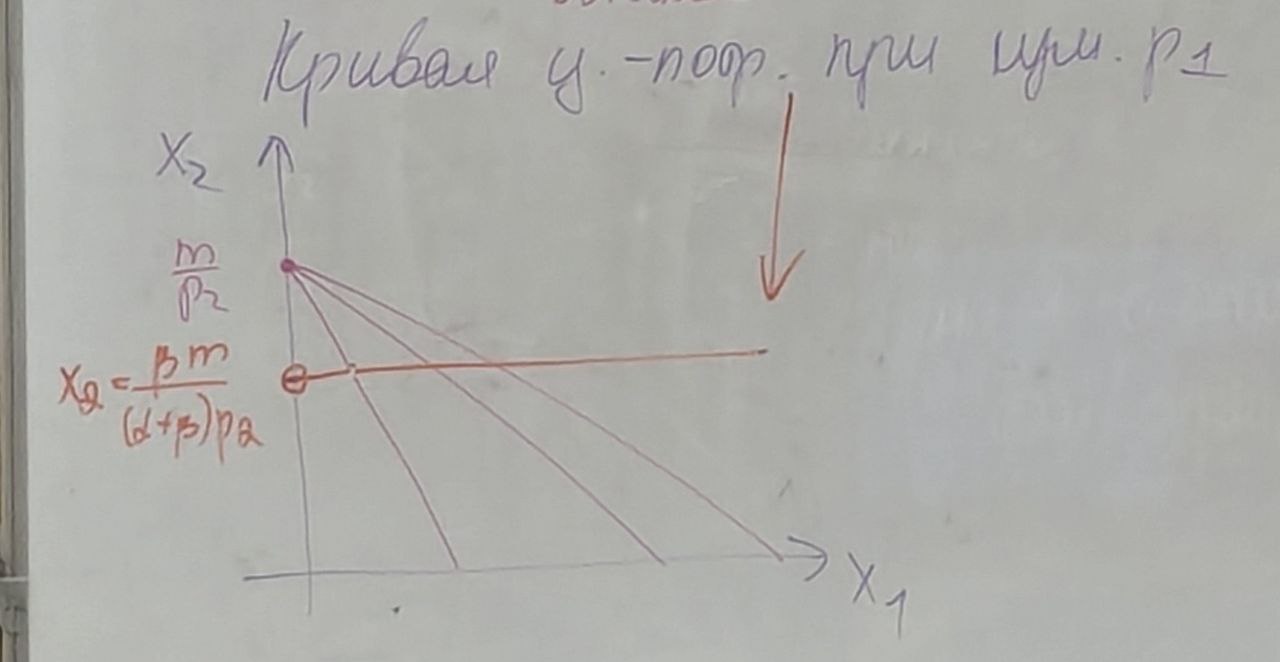 Кривая ц.-потр. при изм. p1
X2
m/p2
X2 = βm/(α+β)p2
X1